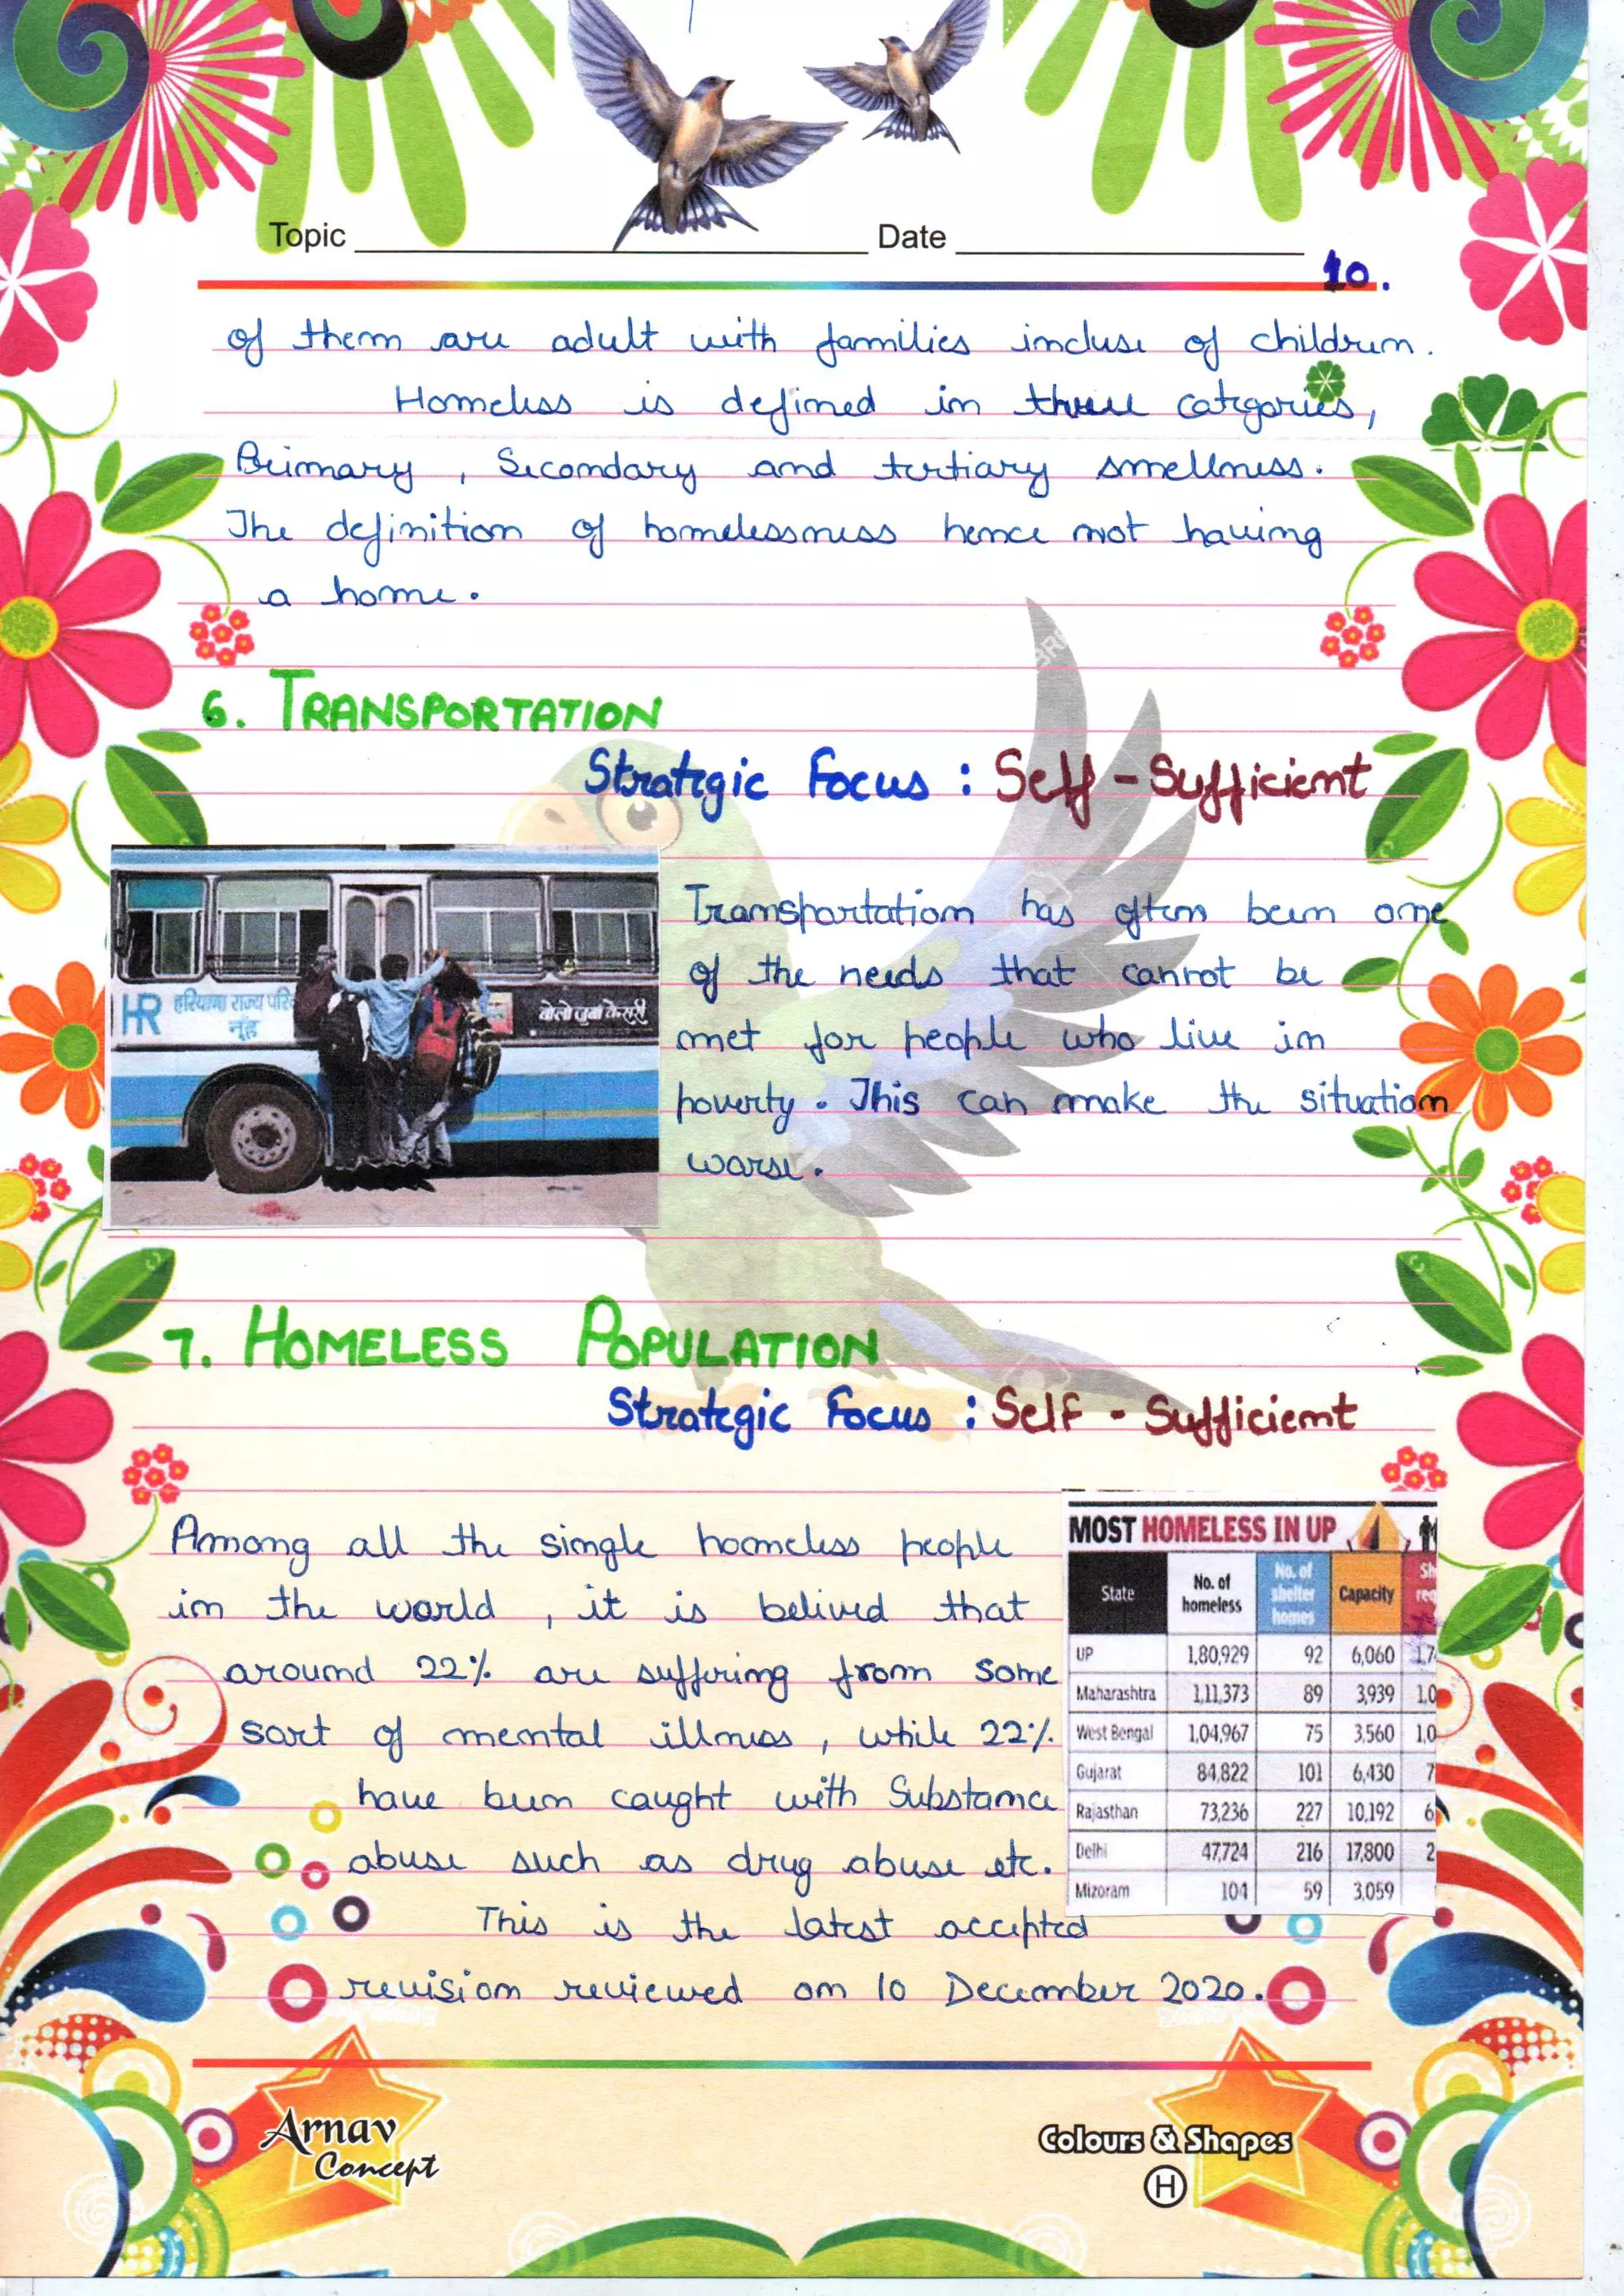 Topic Date
10.
of them are adult with families incluse of children.
Homeless is defined in three catrgories,
Primary , Secondary and tertiary smellness.
The definition of homelessness hence not having
a home.
6. TRANSPORTATION
Strategic Focus : Self - Sufficient
HR हरियाणा राज्य परि
नूंह
बोलो जुबां केसरी
Transportation has often been one
of the needs that cannot be
met for people who live in
poverty. This can make the situation
worse.
7. HOMELESS POPULATION
Strategic Focus : Self - Sufficient
Among all the single homeless people
in the world , it is belived that
around 22% are suffering from some
sort of mental illness , while 22%
have been caught with Substance
abuse such as drug abuse etc.
This is the latest accepted
revision reviewed on 10 December 2020.
MOST HOMELESS IN UP
State No. of homeless No. of shelter homes Capacity Sh req
UP 1,80,929 92 6,060 1,7
Maharashtra 1,11,373 89 3,939 1,0
West Bengal 1,04,967 75 3,560 1,0
Gujarat 84,822 101 6,430 7
Rajasthan 73,236 227 10,192 6
Delhi 47,724 216 17,800 2
Mizoram 104 59 3,059
Arnav
Concept
Colours & Shapes
H